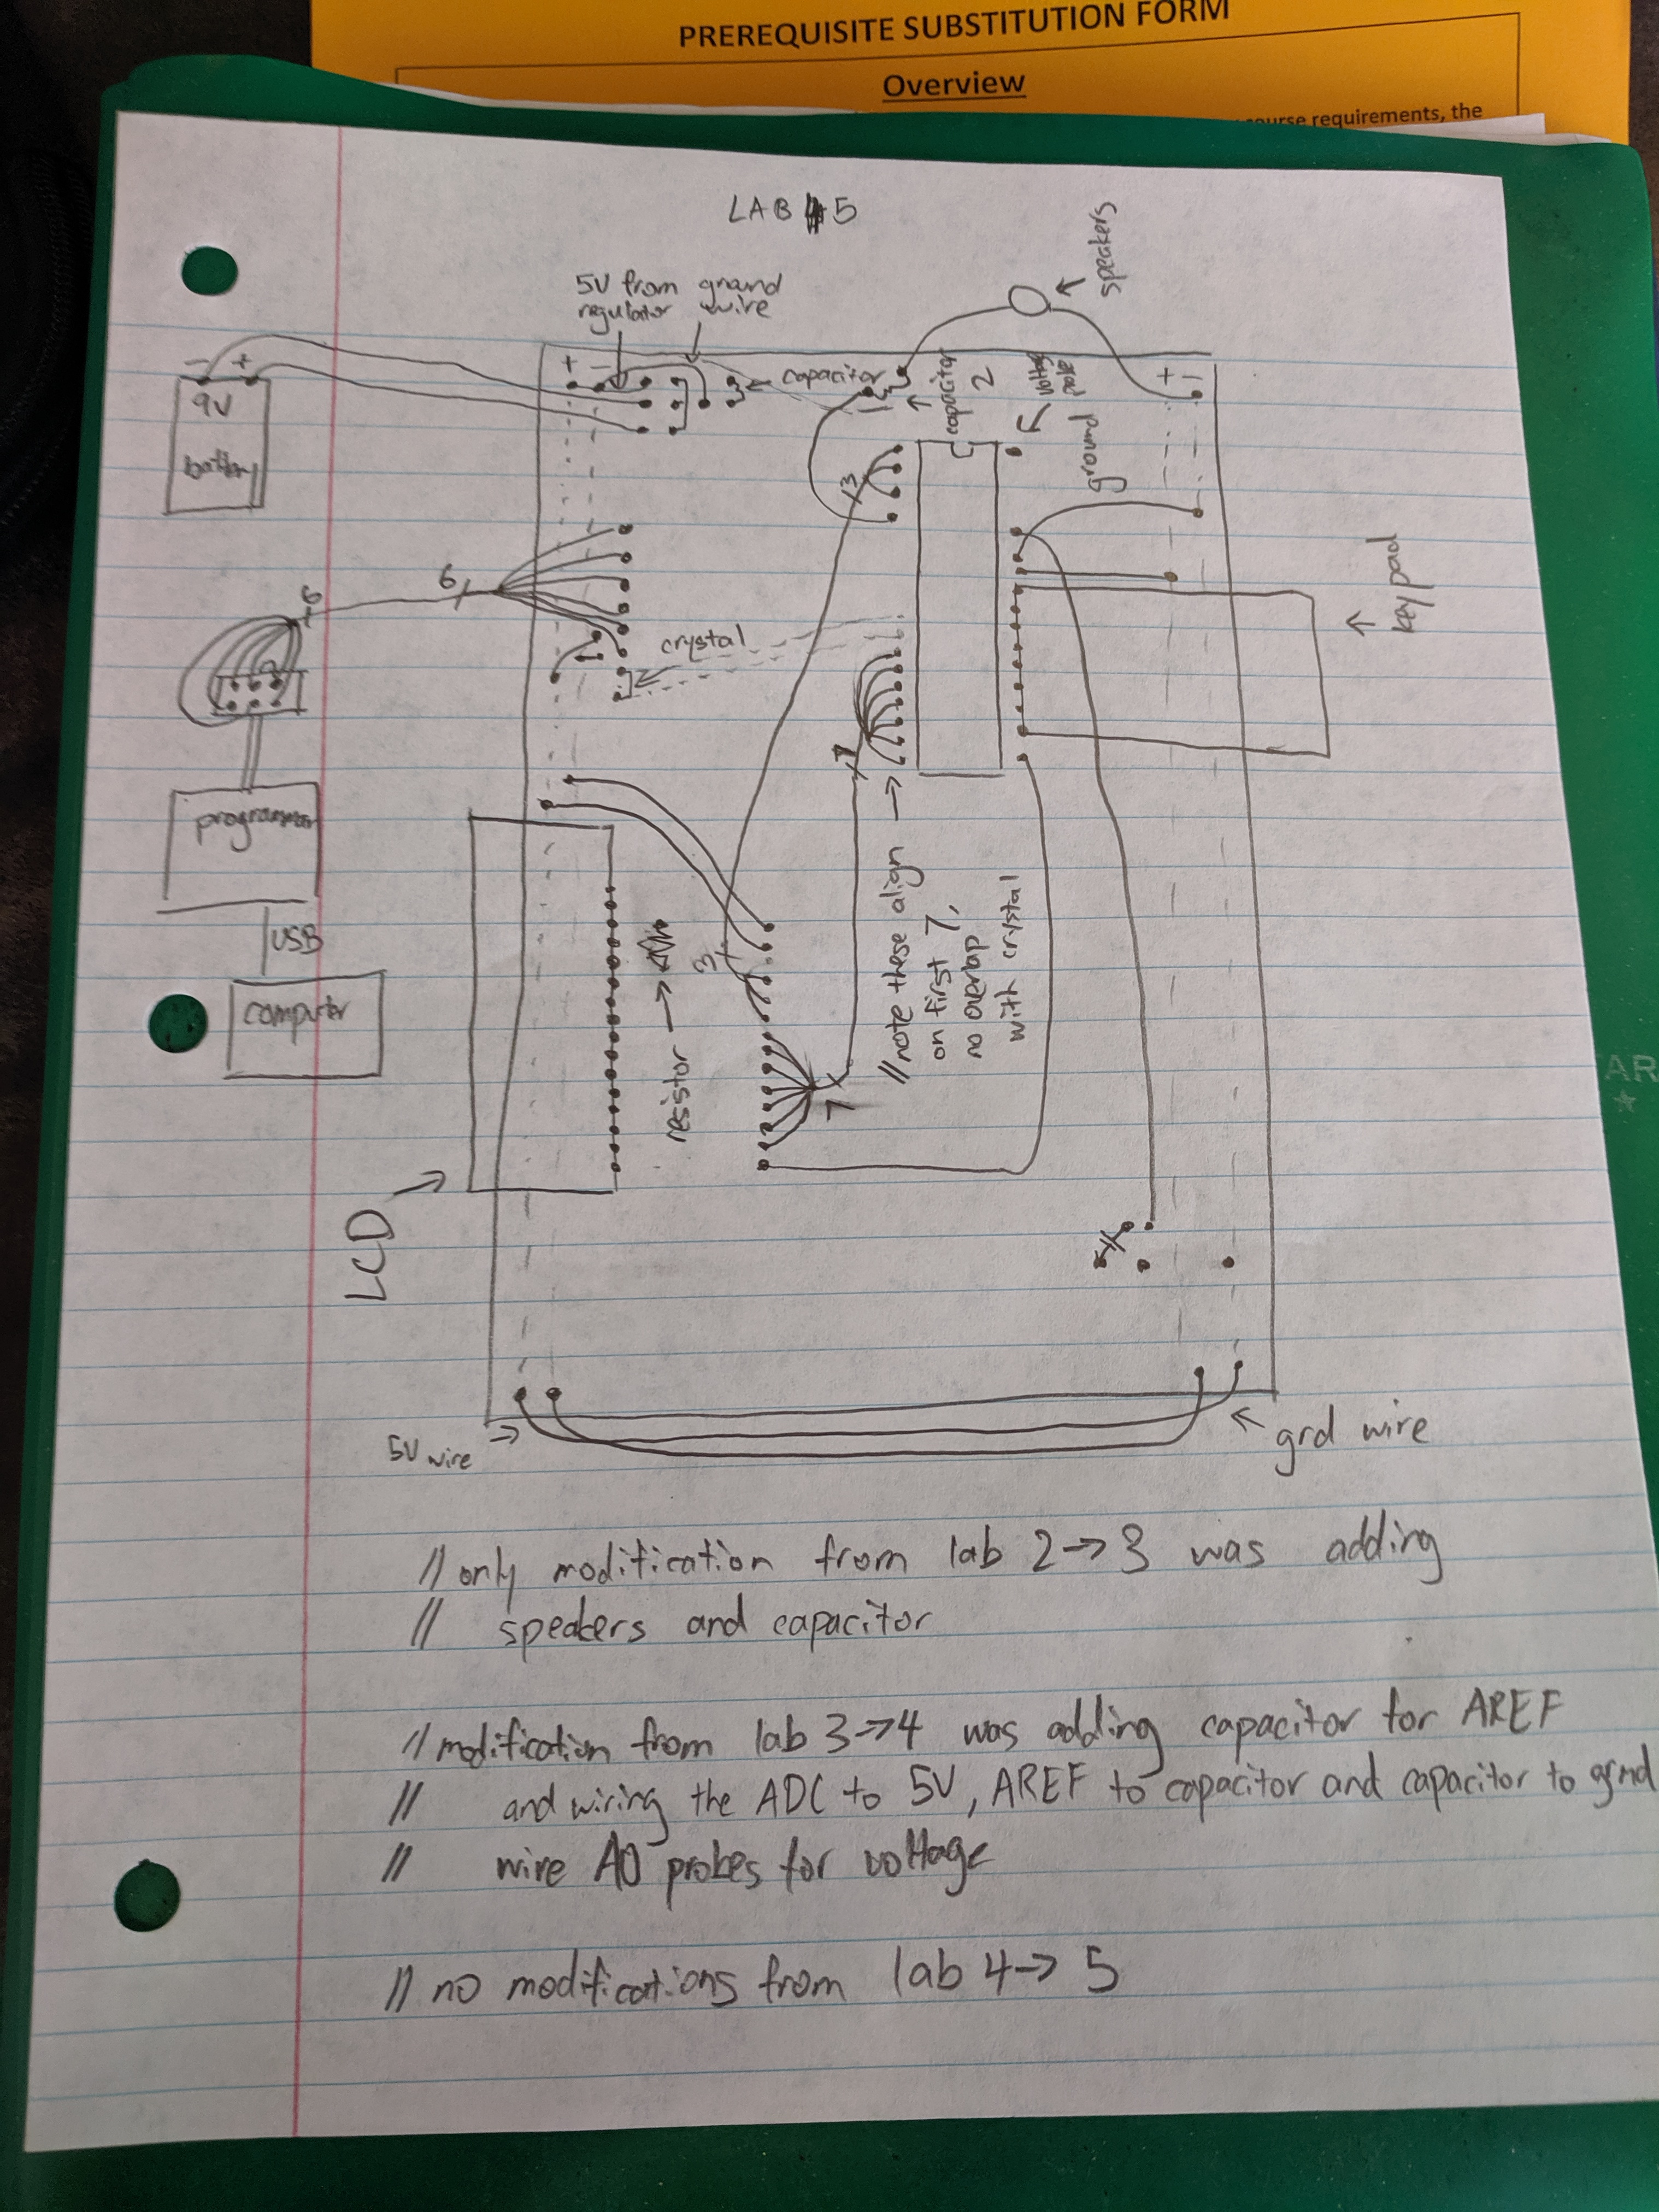 PREREQUISITE SUBSTITUTION FORM
Overview
course requirements, the
LAB 5
5V from
regulator
ground
wire
speakers
- +
9V
battery
+ -
capacitor
capacitor
2
voltage
pole
+ -
ground
3
6
6
crystal
key pad
programmer
USB
computer
7
resistor →
3
// note these align →
on first 7,
no overlap
with crystal
7
LCD
5V wire
grd wire
// only modification from lab 2→3 was adding
// speakers and capacitor
// modification from lab 3→4 was adding capacitor for AREF
// and wiring the ADC to 5V, AREF to capacitor and capacitor to grnd
// wire A0 probes for voltage
// no modifications from lab 4→5
AR